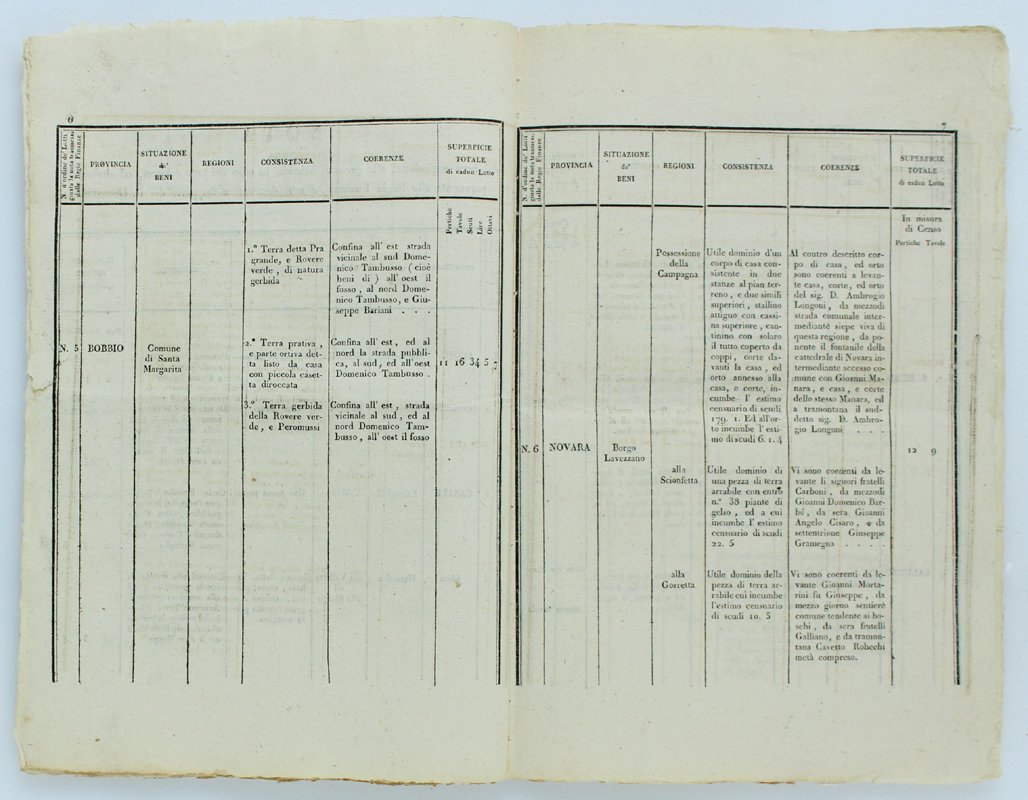 6
N. d'ordine de' Lotti
giusta la nota trasmessa
dalle Regie Finanze
PROVINCIA
SITUAZIONE
de'
BENI
REGIONI
CONSISTENZA
COERENZE
SUPERFICIE
TOTALE
di cadun Lotto
Pertiche
Tavole
Scuti
Lire
Ottavi
1.° Terra detta Pra
grande, e Rovere
verde, di natura
gerbida
Confina all' est strada
vicinale al sud Dome-
nico Tambusso (cioè
beni di) all'oest il
fosso, al nord Dome-
nico Tambusso, e Giu-
seppe Bariani . . .
N. 5
BOBBIO
Comune
di Santa
Margarita
2.° Terra prativa,
e parte ortiva det-
ta listo da casa
con piccola caset-
ta diroccata
Confina all' est, ed al
nord la strada pubbli-
ca, al sud, ed all'oest
Domenico Tambusso .
11 16 34 5 7
3.° Terra gerbida
della Rovere ver-
de, e Peromussi
Confina all' est, strada
vicinale al sud, ed al
nord Domenico Tam-
busso, all'oest il fosso
7
N. d'ordine de' Lotti
giusta la nota trasmessa
dalle Regie Finanze
PROVINCIA
SITUAZIONE
de'
BENI
REGIONI
CONSISTENZA
COERENZE
SUPERFICIE
TOTALE
di cadun Lotto
In misura
di Censo
Pertiche Tavole
Possessione
della
Campagna
Utile dominio d'un
corpo di casa con-
sistente in due
stanze al pian ter-
reno, e due simili
superiori, stailino
attiguo con cassi-
na superiore, can-
tinino con solaro
il tutto coperto da
coppi, corte da-
vanti la casa, ed
orto annesso alla
casa, e corte, in-
cumbe l' estimo
censuario di scudi
179. 1. Ed all'or-
to incumbe l' esti-
mo di scudi 6. 1. 4
Al contro descritto cor-
po di casa, ed orto
sono coerenti a levan-
te casa, corte, ed orto
del sig. D. Ambrogio
Longoni, da mezzodì
strada comunale inter-
mediante siepe viva di
questa regione, da po-
nente il fontanile della
cattedrale di Novara in-
termediante accesso co-
mune con Gioanni Ma-
nara, e casa, e corte
dello stesso Manara, ed
a tramontana il sud-
detto sig. D. Ambro-
gio Longoni . . . .
N. 6
NOVARA
Borgo
Lavezzano
12 9
alla
Scionfetta
Utile dominio di
una pezza di terra
arrabile con entro
n.° 38 piante di
gelso, ed a cui
incumbe l' estimo
censuario di scudi
22. 5
Vi sono coerenti da le-
vante li signori fratelli
Carboni, da mezzodì
Gioanni Domenico Bar-
bé, da sera Gioanni
Angelo Cisaro, e da
settentrione Giuseppe
Gramegna . . . .
alla
Gorretta
Utile dominio della
pezza di terra ar-
rabile cui incumbe
l'estimo censuario
di scudi 10. 5
Vi sono coerenti da le-
vante Gioanni Morta-
rini fu Giuseppe, da
mezzo giorno sentiere
comune tendente ai bo-
schi, da sera fratelli
Galliano, e da tramon-
tana Cavetto Robecchi
metà compreso.